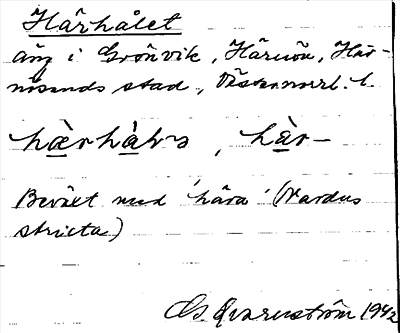 Hårhålet
äng i Grönvik, Härnön, Här-
nösands stad, Västernorrl. l.
hærhàhɔ, hær-
Beväxt med 'håra' (Nardus
stricta)
Qvarnström 1942